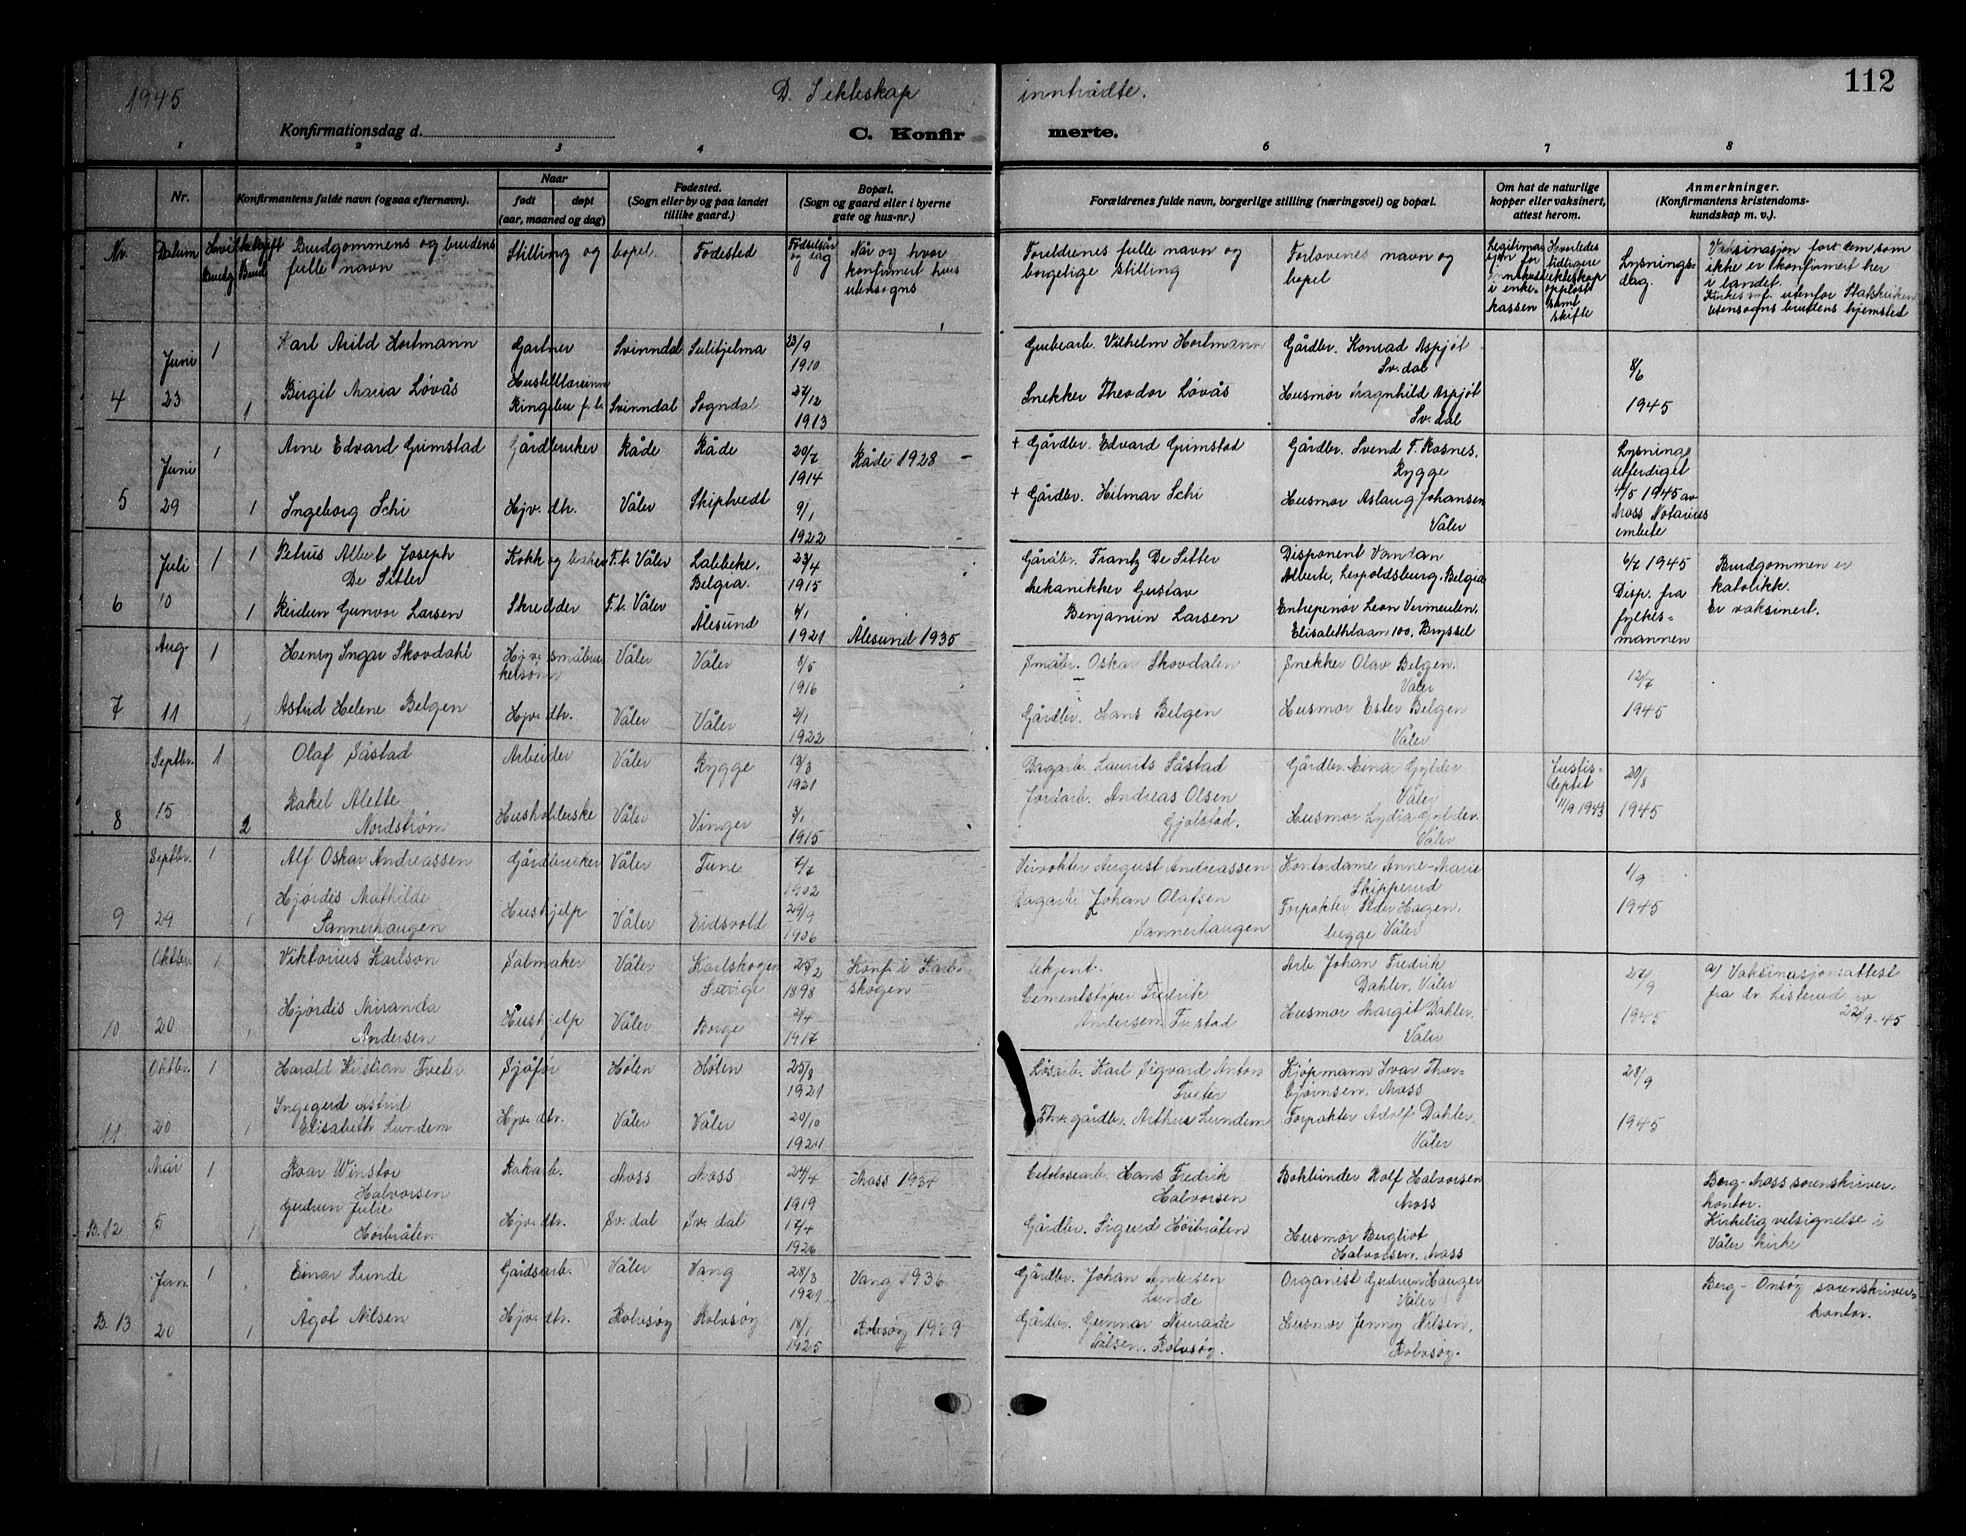 1945
D. I ekteskap inntrådte.
112
Konfirmationsdag d.
C. Konfirmerte.
1 2 3 4 6 7 8
Nr.
Konfirmantens fulde navn (ogsaa efternavn).
Naar
født døpt
(aar, maaned og dag)
Fødested.
(Sogn eller by og paa landet
tillike gaard.)
Bopæl.
(Sogn og gaard eller i byerne
gate og hus-nr.)
Forældrenes fulde navn, borgerlige stilling (næringsvei) og bopæl.
Om hat de naturlige
kopper eller vaksinert,
attest herom.
Anmerkninger.
(Konfirmantens kristendoms-
kundskap m. v.).
Nr. Datum Hvilket gift
Brudg. Brud
Brudgommens og brudens
fulle navn
Stilling og bopel.
Fødested
Fødselsår
og dag
Når og hvor
konfirmert hvis
utensogns
Foreldrenes fulle navn og
borgelige stilling
Forlovernes navn og
bopel
Lysnings-
dag.
Vaksinasjon fort dem som
ikke er konfirmert her
i landet.
utenfor Statskirken
utensogns brudens hjemsted
4
Juni
23
1
Karl Arild Hortmann
Gartner
Svinndal
Sulitjelma
23/9
1910
Grubearb. Vilhelm Hortmann
Gårdbr. Konrad Aspjøt
Sv.dal
8/6
1945
1
Birgit Maria Løvås
Svinndal
Sogndal
27/12
1913
Snekker Theodor Løvås
Husmor Ragnhild Aspjøt
Sv.dal
5
Juni
29
1
Arne Edvard Grimstad
Gårdbruker
Råde
Råde
20/7
1914
Råde 1928
+ Gårdbr. Edvard Grimstad
Gårdbr. Svend F. Rosnes,
Rygge
Lysning
utferdiget
4/5 1945 av
Moss Notarius
embete
1
Ingeborg Schi
Hjv. dtr.
Våler
Skiptvedt
9/1
1922
+ Gårdbr. Hilmar Schi
Husmor Aslaug Johansen
Våler
6
Juli
10
1
1
Petrus Albert Joseph
De Sitter
Kokk og baker
F.t. Våler
Labbeke.
Belgia.
23/4
1915
Gårdbr. Frantz De Sitter
Disponent Vandan
Alberte, Leopoldsburg, Belgia
6/7 1945
Disp. fra
fylkes-
mannen
Brudgommen er
katolikk.
Er vaksinert.
1
Reidun Gunvor Larsen
Skredder
F.t. Våler
Ålesund
4/1
1921
Ålesund 1935
Mekanikker Gustav
Benjamin Larsen
Entreprenør Leon Vermeulen,
Elisabethlaan 100, Bryssel
7
Aug.
11
1
Henry Ingar Skovdahl
Våler
Våler
8/5
1916
Småbr. Oskar Skovdalen
Snekker Olav Belgen.
Våler
12/7
1945
1
Astrid Helene Belgen
Hjv. dtr.
Våler
Våler
2/1
1922
Gårdbr. Hans Belgen
Husmor Ester Belgen
Våler
8
Septbr.
15
1
Olaf Såstad
Arbeider
Våler
Rygge
13/3
1921
Dagarb. Laurits Såstad
Gårdbr. Einar Gylder
Våler
Justis-
deptet
11/9 1943
20/8
1945
2
Rakel Alette
Nordstrøm
Husholderske
Våler
Vinger
3/1
1915
Jordarb. Andreas Olsen
Gjølstad.
Husmor Lydia Gylder.
Våler
9
Septbr.
29
1
Alf Oskar Andreassen
Gårdbruker
Våler
Tune
1902
Veivokter August Andreassen
Kontordame Anne-Marie
Skipperud
1/9
1945
1
Hjørdis Mathilde
Sannerhaugen
Hushjelp
Våler
Eidsvold
29/9
1906
Dagarb. Johan Olafsen
Sannerhaugen
Forpakter Peder Hagen,
begge Våler
10
Oktbr.
20
1
Viktorius Karlson
Salmaker
Våler
Karlskogen
Sverige
25/2
1898
Konf. i Karls-
skogen
Ukjent.
Arb. Johan Fredrik
Dahler, Våler
27/9
1945
a) Vaksinasjonsattest
fra dr. Listerud av
22/9-45
1
Hjørdis Miranda
Andersen
Hushjelp
Våler
Borge
2/4
1917
Cementstøper Fredrik
Andersen
Husmor Margit Dahler,
Våler
11
Oktbr.
20
1
Harald Kristian Tveter
Sjåfør
Hølen
Hølen
25/8
1921
Karl Sigvard Anton
Tveter
Kjøpmann Ivar Thor-
bjørnsen, Moss
28/9
1945
1
Ingegerd Astrid
Elisabeth Lundem
Hjv. dtr.
Våler
Våler
20/10
1921
Fhv. gårdbr. Arthur Lundem
Forpakter Adolf Dahler,
Våler
B. 12
Mai
5
1
Roar Winstor
Halvorsen
Moss
Moss
24/4
1919
Moss 1934
Celulosearb. Hans Fredrik
Halvorsen
Bokbinder Rolf Halvorsen
Moss
Berg-Moss sorenskriver-
kontor.
Kirkelig velsignelse i
Våler kirke
1
Gudrun Julie
Høibråten
Hjv. dtr.
Sv. dal
Sv. dal
17/4
1926
Gårdbr. Sigurd Høibråten
Husmor Bergliot
Halvorsen. Moss
B. 13
Jan.
20
1
Einar Lunde
Gårdsarb.
Våler
Vang
28/3
1921
Vang 1936
Gårdbr. Johan Andersen
Lunde
Organist Gudrun Hauger
Våler
Berg-Onsøy sorenskriver-
kontor.
1
Ågot Nilsen
Hjv. dtr.
Rolvsøy
Rolvsøy
18/1
1925
Rolvsøy 1939
Gårdbr. Gunnar Neurade
Nilsen. Rolvsøy.
Husmor Jenny Nilsen,
Rolvsøy.